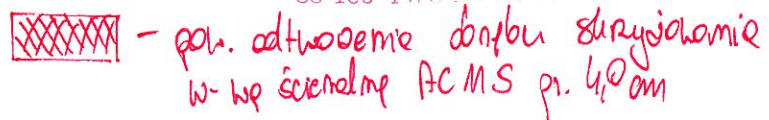 - pow. odtworzenie obrębu skrzyżowania
w-wę ścieralną AC11S gr. 4,0 cm